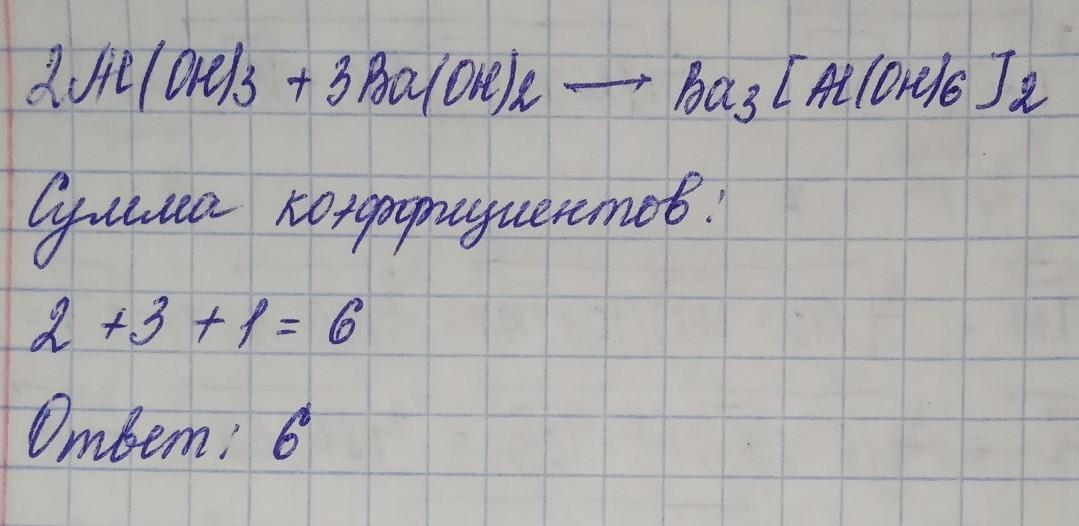 2Al(OH)3 + 3Ba(OH)2 ⟶ Ba3[Al(OH)6]2
Сумма коэффициентов:
2 + 3 + 1 = 6
Ответ: 6